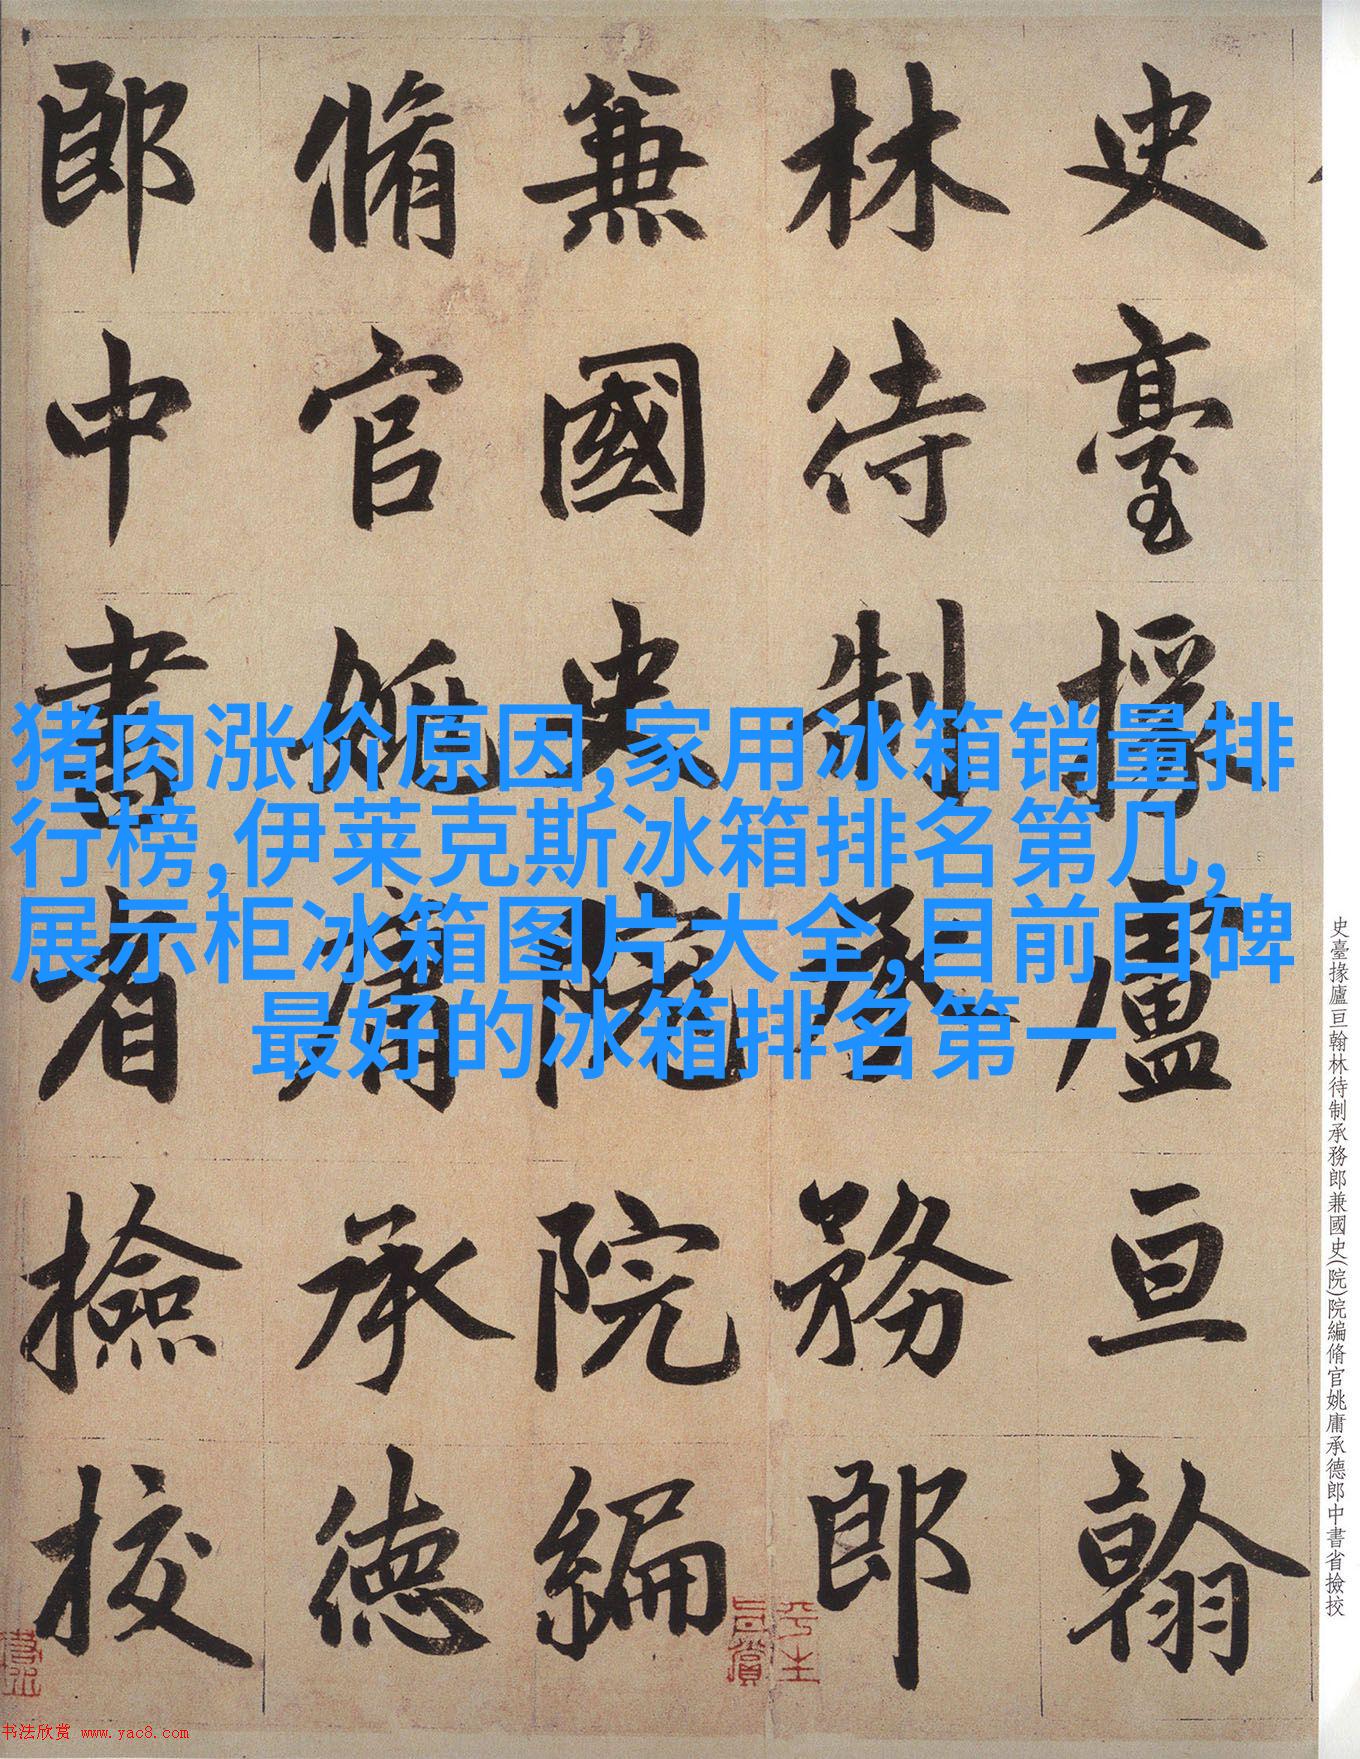 史臺掾廬亘翰
林待制承務郎
兼國史院院編
脩官姚庸承德
郎中書省撿挍
猪肉涨价原因,家用冰箱销量排
行榜,伊莱克斯冰箱排名第几,
展示柜冰箱图片大全,目前口碑
最好的冰箱排名第一
史臺掾廬亘翰林待制承務郎兼國史(院)院編脩官姚庸承德郎中書省撿挍
书法欣赏 www.yac8.com